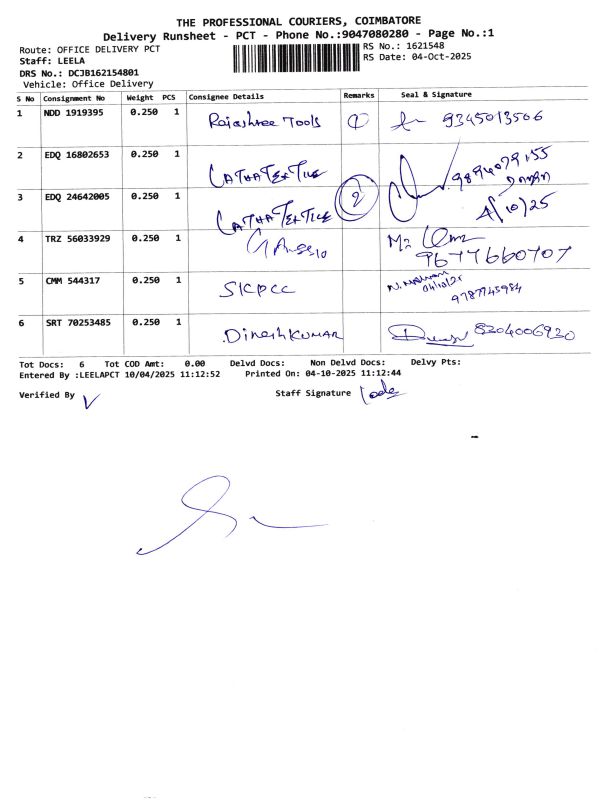 THE PROFESSIONAL COURIERS, COIMBATORE
Delivery Runsheet - PCT - Phone No.:9047080280 - Page No.:1
Route: OFFICE DELIVERY PCT
RS No.: 1621548
Staff: LEELA
RS Date: 04-Oct-2025
DRS No.: DCJB162154801
Vehicle: Office Delivery
S No Consignment No Weight PCS Consignee Details Remarks Seal & Signature
1 NDD 1919395 0.250 1 Rajashree Tools 1 9345013506
2 EDQ 16802653 0.250 1 LATHA TEXTILE
3 EDQ 24642005 0.250 1 LATHA TEXTILE 2 4/10/25
4 TRZ 56033929 0.250 1 9677660707
5 CMM 544317 0.250 1 SICPCC 04/10/25 9787745984
6 SRT 70253485 0.250 1 Dinesh KUMAR 8304006930
Tot Docs: 6 Tot COD Amt: 0.00 Delvd Docs: Non Delvd Docs: Delvy Pts:
Entered By :LEELAPCT 10/04/2025 11:12:52 Printed On: 04-10-2025 11:12:44
Verified By
Staff Signature